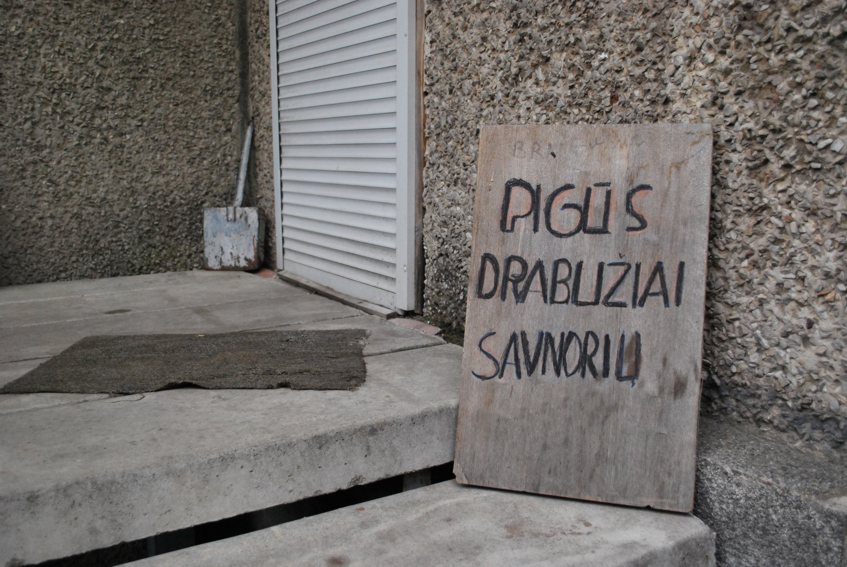 PIGŪS
DRABUŽIAI
SAVNORIŲ